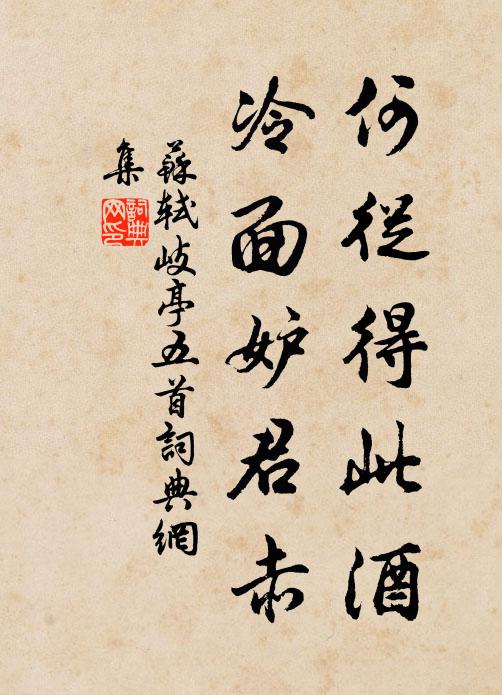 何從得此酒
冷面妒君赤
蘇軾歧亭五首詞典網
集
詞典網印